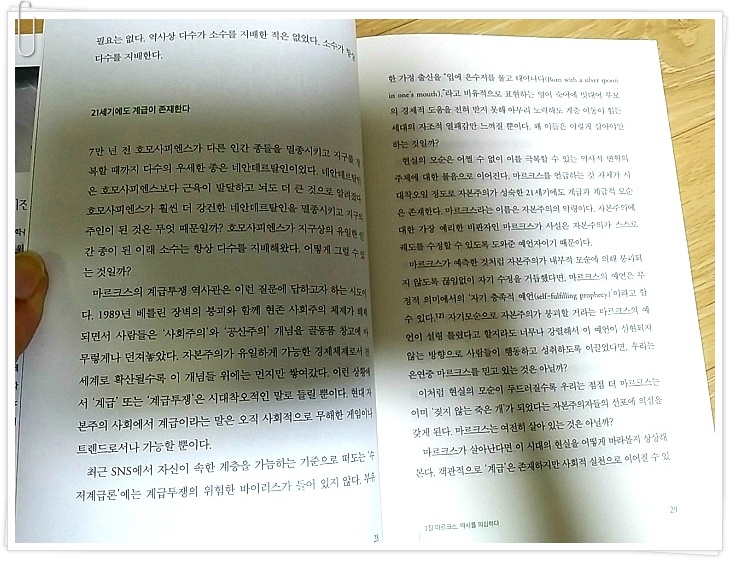 필요는 없다. 역사상 다수가 소수를 지배한 적은 없었다. 소수가 항상
다수를 지배한다.
21세기에도 계급이 존재한다
7만 년 전 호모사피엔스가 다른 인간 종들을 멸종시키고 지구를 정
복할 때까지 다수의 우세한 종은 네안데르탈인이었다. 네안데르탈인
은 호모사피엔스보다 근육이 발달하고 뇌도 더 큰 것으로 알려졌다.
호모사피엔스가 훨씬 더 강건한 네안데르탈인을 멸종시키고 지구의
주인이 된 것은 무엇 때문일까? 호모사피엔스가 지구상의 유일한 인
간 종이 된 이래 소수는 항상 다수를 지배해왔다. 어떻게 그럴 수 있
는 것일까?
마르크스의 계급투쟁 역사관은 이런 질문에 답하고자 하는 시도이
다. 1989년 베를린 장벽의 붕괴와 함께 현존 사회주의 체제가 해체
되면서 사람들은 '사회주의'와 '공산주의' 개념을 골동품 창고에 아
무렇게나 던져놓았다. 자본주의가 유일하게 가능한 경제체제로서 전
세계로 확산될수록 이 개념들 위에는 먼지만 쌓여갔다. 이런 상황에
서 '계급' 또는 '계급투쟁'은 시대착오적인 말로 들릴 뿐이다. 현대 자
본주의 사회에서 계급이라는 말은 오직 사회적으로 무해한 게임이나
트렌드로서나 가능할 뿐이다.
최근 SNS에서 자신이 속한 계층을 가늠하는 기준으로 떠도는 '수
저계급론'에는 계급투쟁의 위험한 바이러스가 들어 있지 않다. 부유
28
한 가정 출신을 "입에 은수저를 물고 태어나다(Born with a silver spoon
in one's mouth)."라고 비유적으로 표현하는 영어 숙어에 빗대어 부모
의 경제적 도움을 전혀 받지 못해 아무리 노력해도 계층 이동이 힘든
세대의 자조적 열패감만 느껴질 뿐이다. 왜 이들은 이렇게 살아야만
하는 것일까?
현실의 모순은 어쩔 수 없이 이를 극복할 수 있는 역사적 변혁의
주체에 대한 물음으로 이어진다. 마르크스를 언급하는 것 자체가 시
대착오일 정도로 자본주의가 성숙한 21세기에도 계급과 계급적 모순
은 존재한다. 마르크스라는 이름은 자본주의의 악령이다. 자본주의에
대한 가장 예리한 비판자인 마르크스가 사실은 자본주의가 스스로
궤도를 수정할 수 있도록 도와준 예언자이기 때문이다.
마르크스가 예측한 것처럼 자본주의가 내부적 모순에 의해 붕괴되
지 않도록 끊임없이 자기 수정을 거듭했다면, 마르크스의 예언은 부
정적 의미에서의 '자기 충족적 예언(self-fulfilling prophecy)'이라고 할
수 있다.[2] 자기모순으로 자본주의가 붕괴할 거라는 마르크스의 예
언이 설령 틀렸다고 할지라도 너무나 강렬해서 이 예언이 실현되지
않는 방향으로 사람들이 행동하고 성취하도록 이끌었다면, 우리는
은연중 마르크스를 믿고 있는 것은 아닐까?
이처럼 현실의 모순이 두드러질수록 우리는 점점 더 마르크스는
이미 '짖지 않는 죽은 개'가 되었다는 자본주의자들의 선포에 의심을
갖게 된다. 마르크스는 여전히 살아 있는 것은 아닐까?
마르크스가 살아난다면 이 시대의 현실을 어떻게 바라볼지 상상해
본다. 객관적으로 '계급'은 존재하지만 사회적 실천으로 이어질 수 있
1장 마르크스, 역사를 의심하다
29